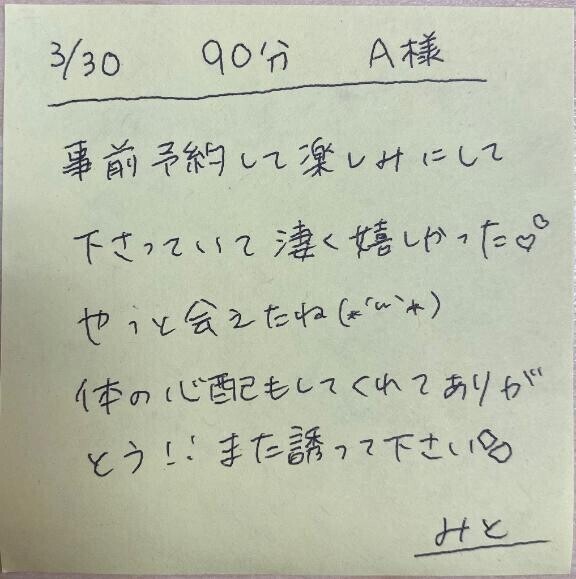 3/30 90分 A様
事前予約して楽しみにして
下さっていて凄く嬉しかった♡♡
やっと会えたね(*´ω`*)
体の心配もしてくれてありが
とう!! また誘って下さい
みと